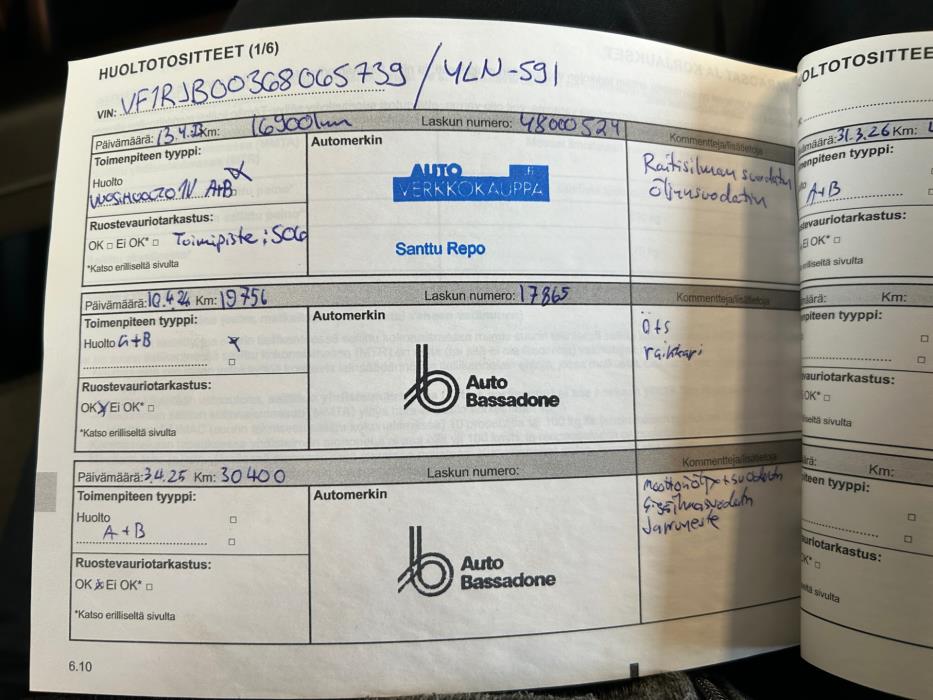 HUOLTOTOSITTEET (1/6)
VIN: VF1RJB00368065739 / YLN-591
Päivämäärä: 13.4.23 Km: 16900km Laskun numero: 48000524 Kommentteja/lisätietoja
Toimenpiteen tyyppi:
Automerkin
Huolto
VUOSIHUOLTO 1V A+B
AUTO
VERKKOKAUPPA.fi
Santtu Repo
Raitisilman suodatin
Öljynsuodatin
Ruostevauriotarkastus:
OK □ Ei OK* □ Toimipiste:
*Katso erilliseltä sivulta
Päivämäärä: 10.4.24 Km: 19756 Laskun numero: 17865 Kommentteja/lisätietoja
Toimenpiteen tyyppi:
Automerkin
Huolto A+B
Auto
Bassadone
Öts
raikkari
Ruostevauriotarkastus:
OK x Ei OK* □
*Katso erilliseltä sivulta
Päivämäärä: 3.4.25 Km: 30400 Laskun numero: Kommentteja/lisätietoja
Toimenpiteen tyyppi:
Automerkin
Huolto
A+B
Auto
Bassadone
moottoriöljy + suodatin
sisäilmasuodatin
Jarruneste
Ruostevauriotarkastus:
OK x Ei OK* □
*Katso erilliseltä sivulta
6.10
OLTOTOSITTEE
määrä: 31.3.26 Km:
enpiteen tyyppi:
A+B
stevauriotarkastus:
Ei OK* □
erilliseltä sivulta
märä: Km:
npiteen tyyppi:
vauriotarkastus:
OK* □
seltä sivulta
rä: Km:
iteen tyyppi:
uriotarkastus:
OK* □
tä sivulta